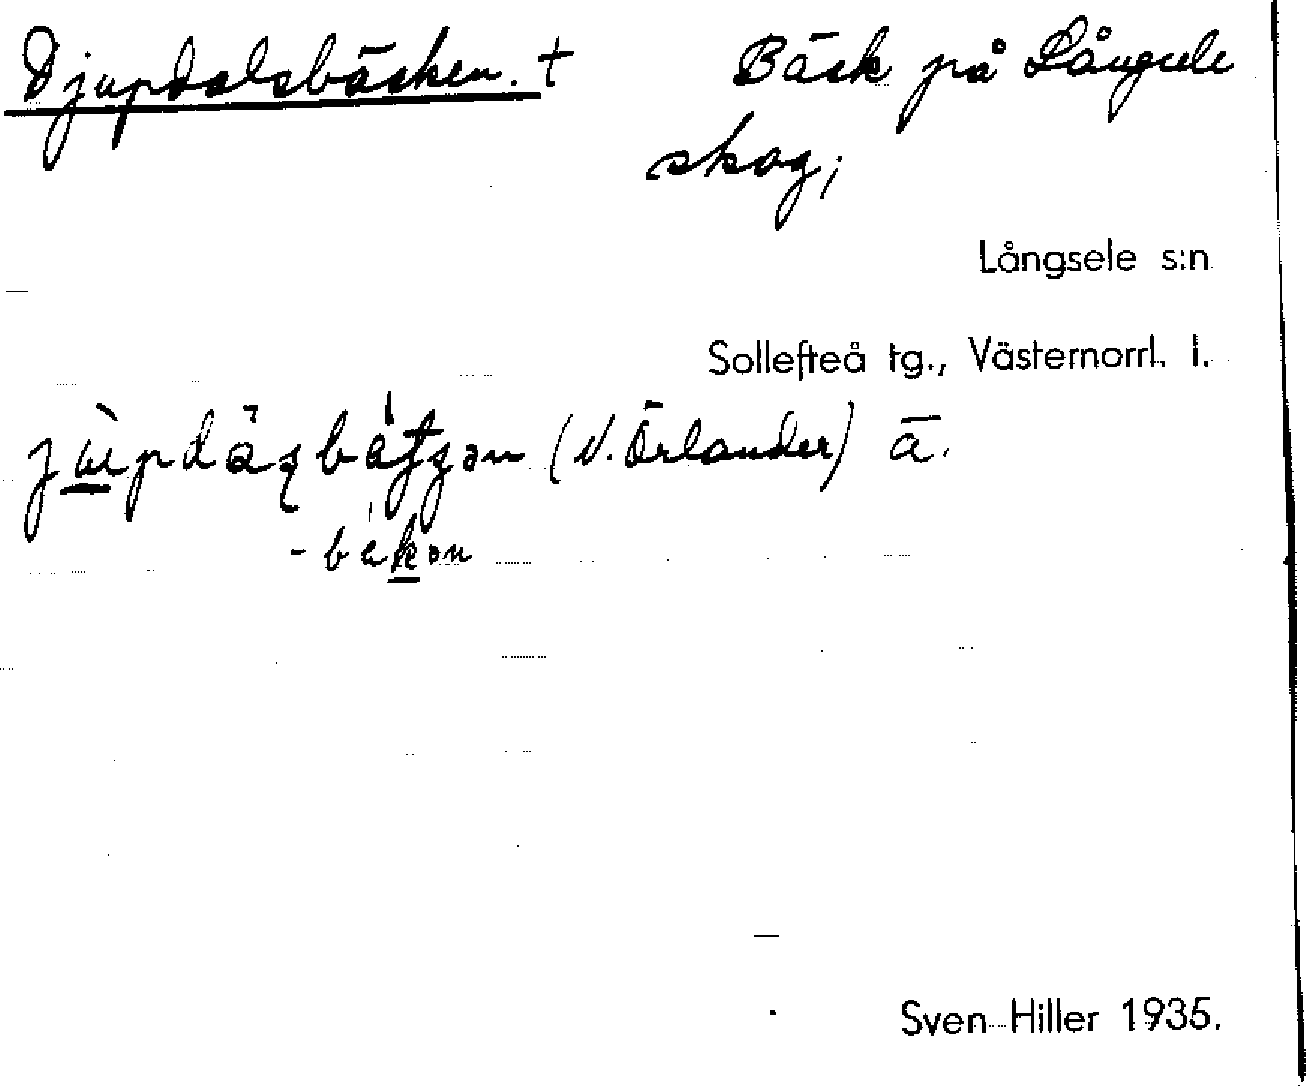 Djupdalsbäcken. + Bäck på Långsele
skog;
Långsele s:n
Sollefteå tg., Västernorrl. l.
(N. Örlander) ä.
Sven Hiller 1935.